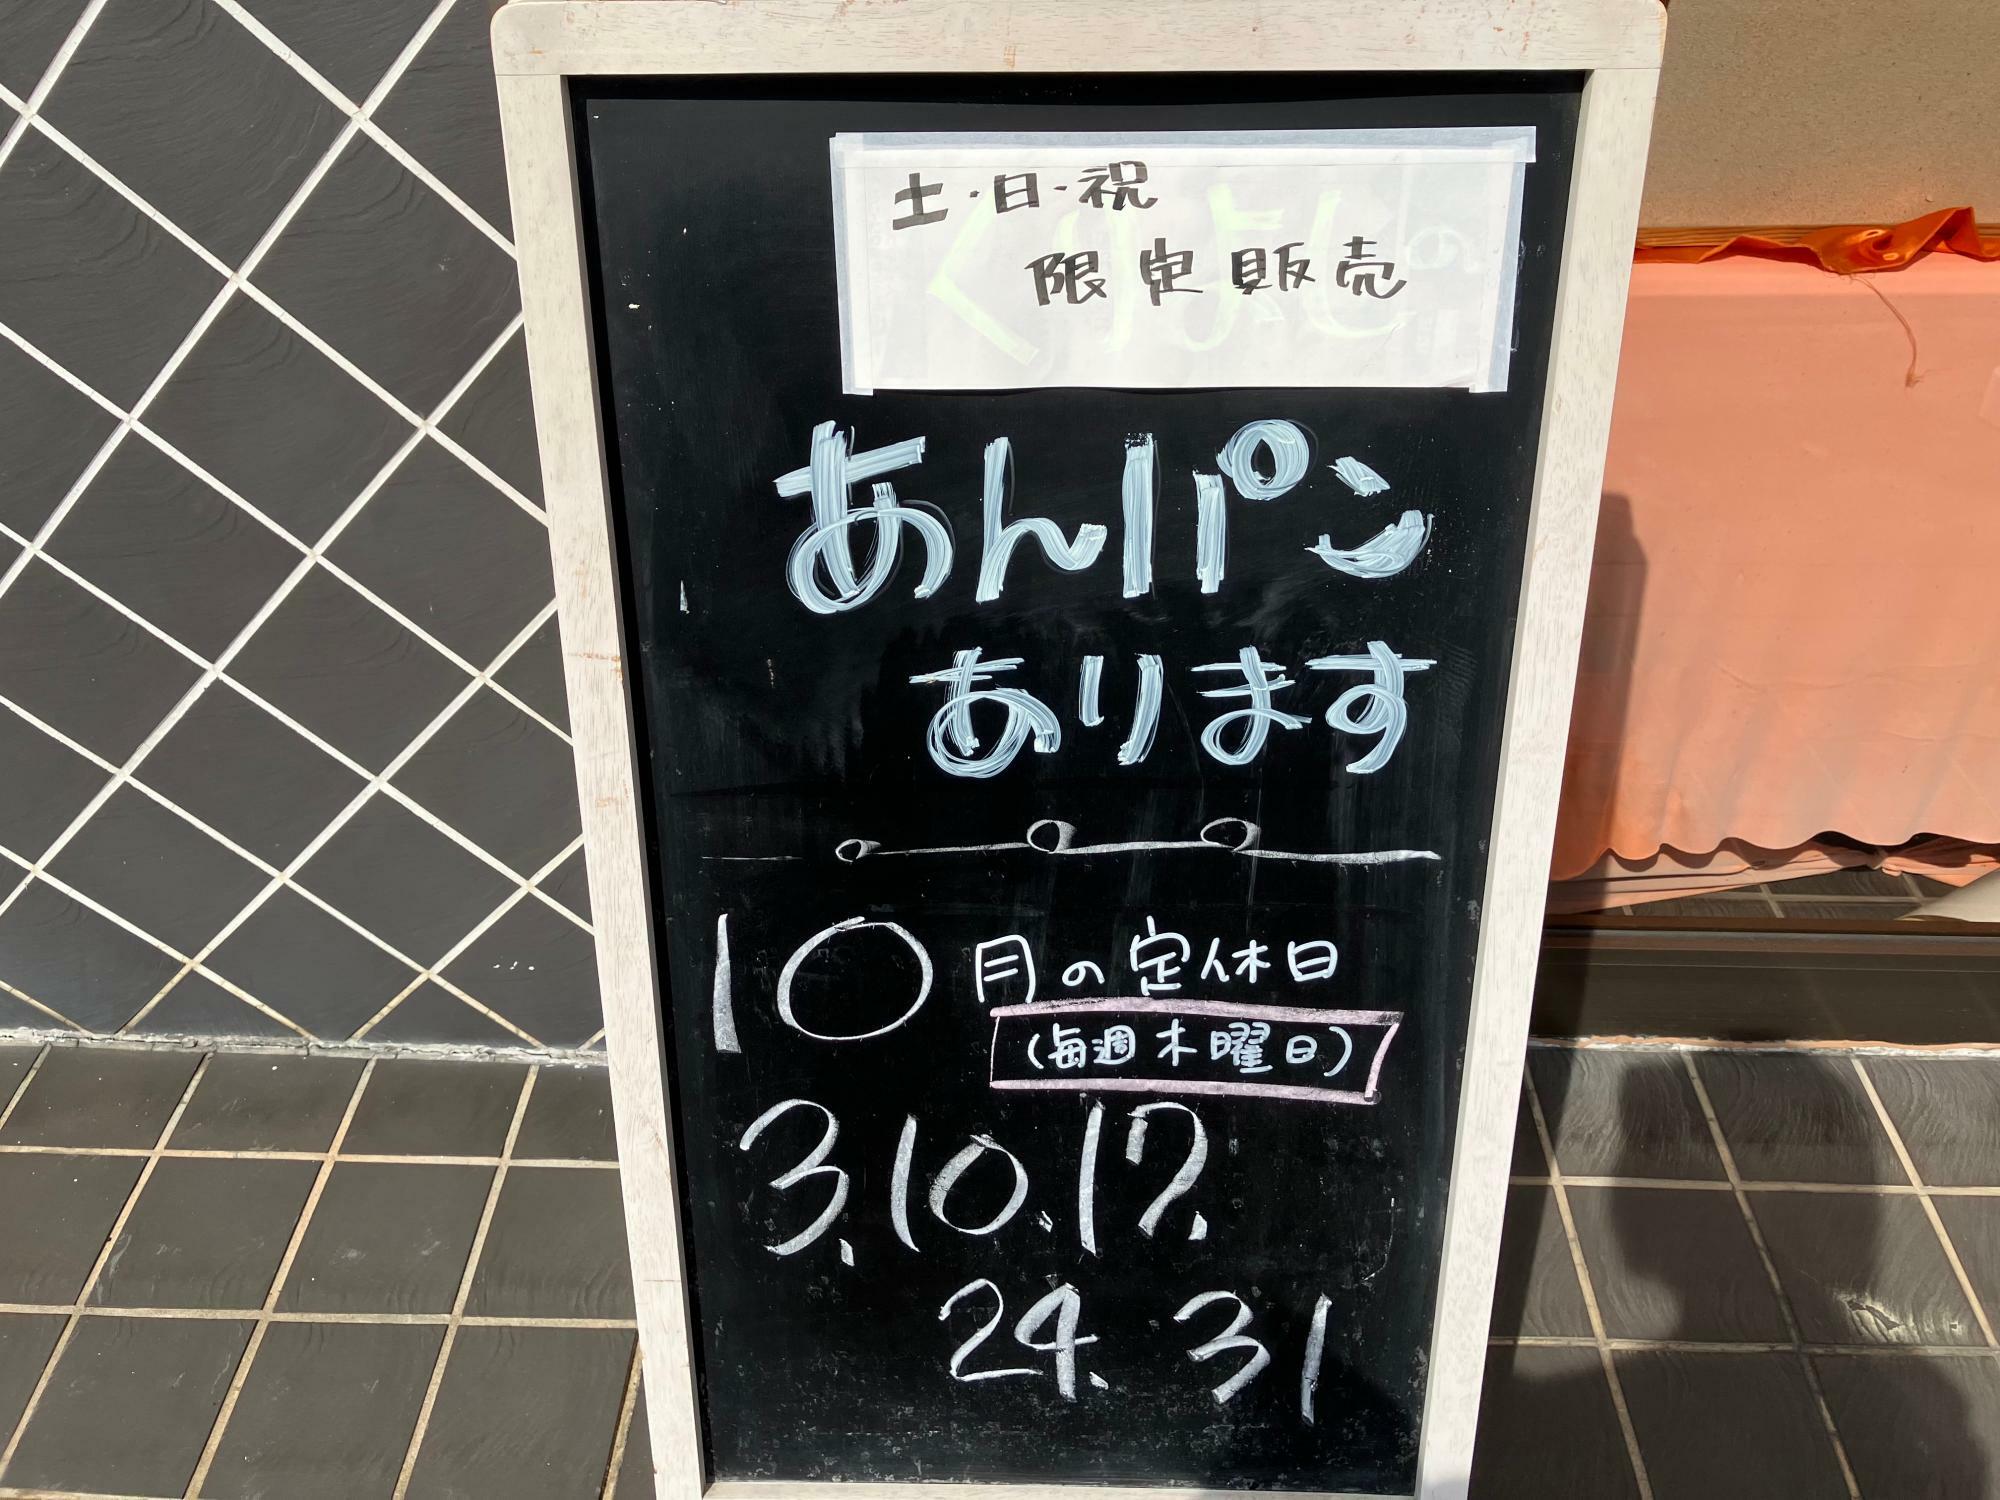 土・日・祝
限定販売
あんパン
あります
10月の定休日
(毎週木曜日)
3.10.17.
24.31